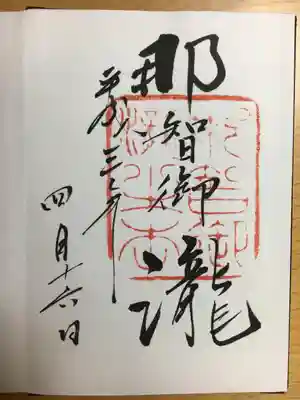 那智御瀧
平成三十年
四月十六日